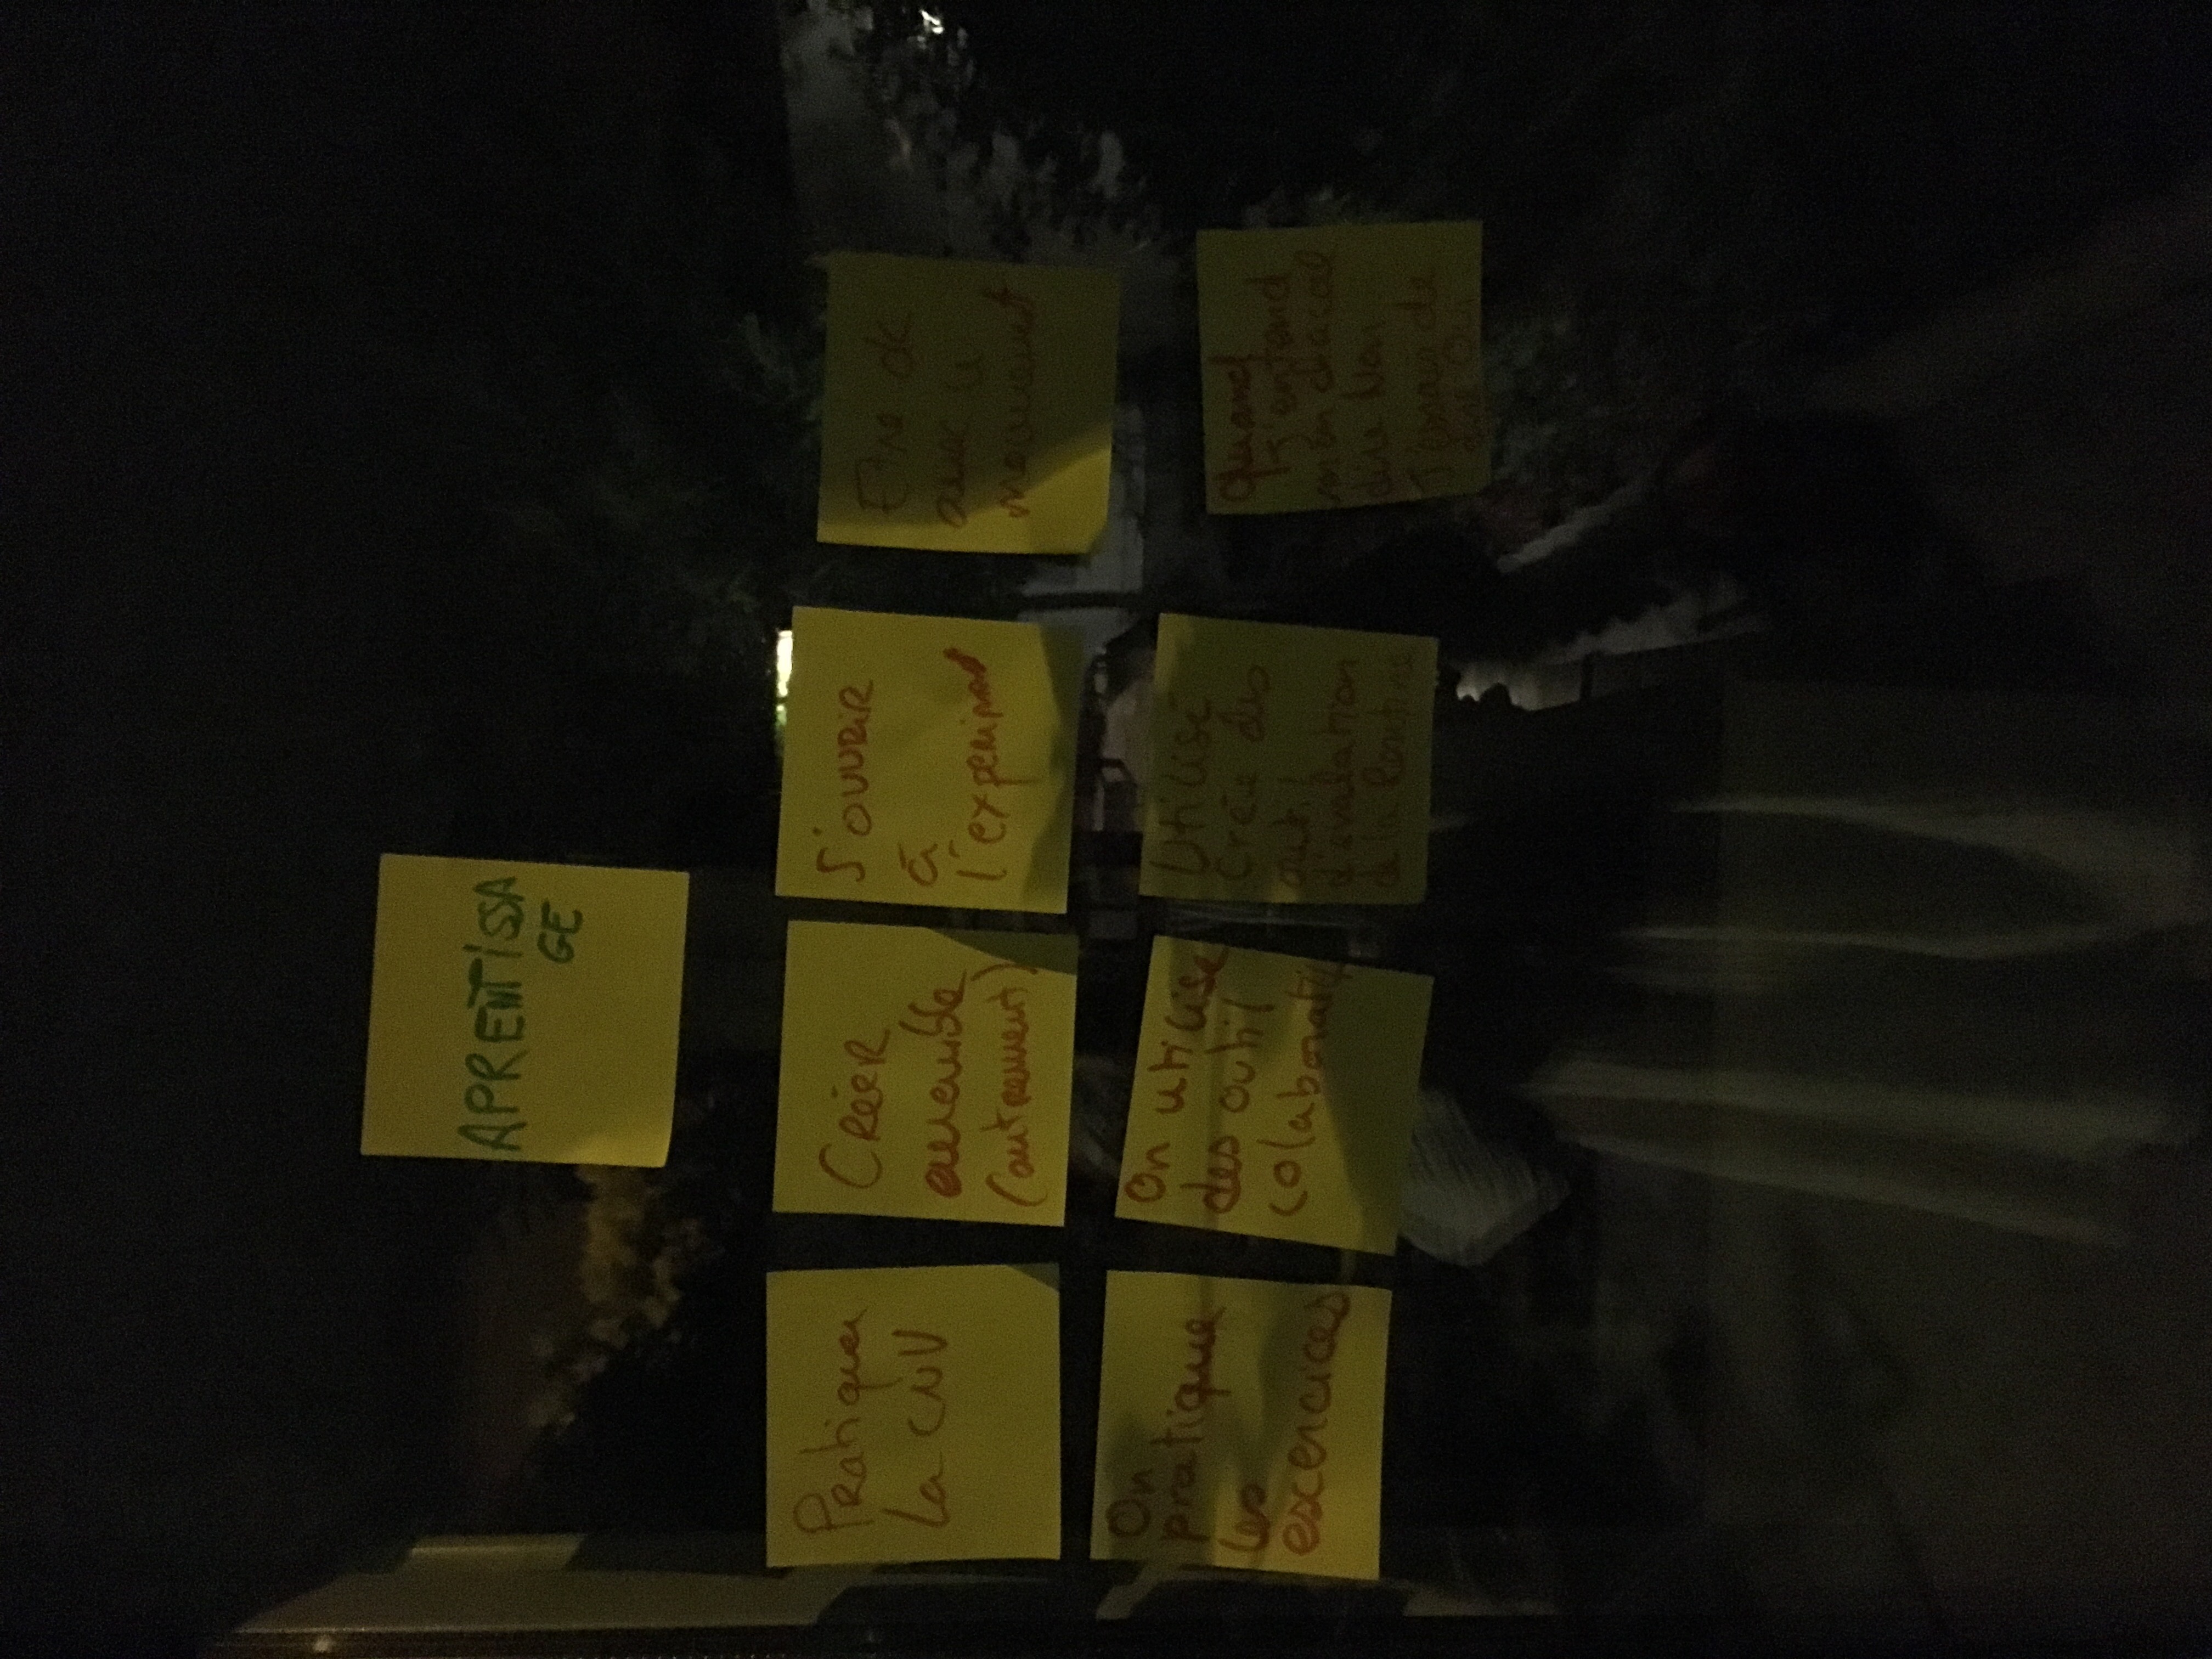 APRENTISSA
GE
Pratiquer
La CNV
CRÉER
ensemble
(autrement)
S'OUVRIR
à
Etre ok
avec le
mouvement
On
pratique
les
excercices
On utilise
des outil
colaboratif
Utilisé
Crée des
outil
d'évalation
de la Routine
Quand
J'entend
mon chacal
dire Non
J'essais de
dire Oui